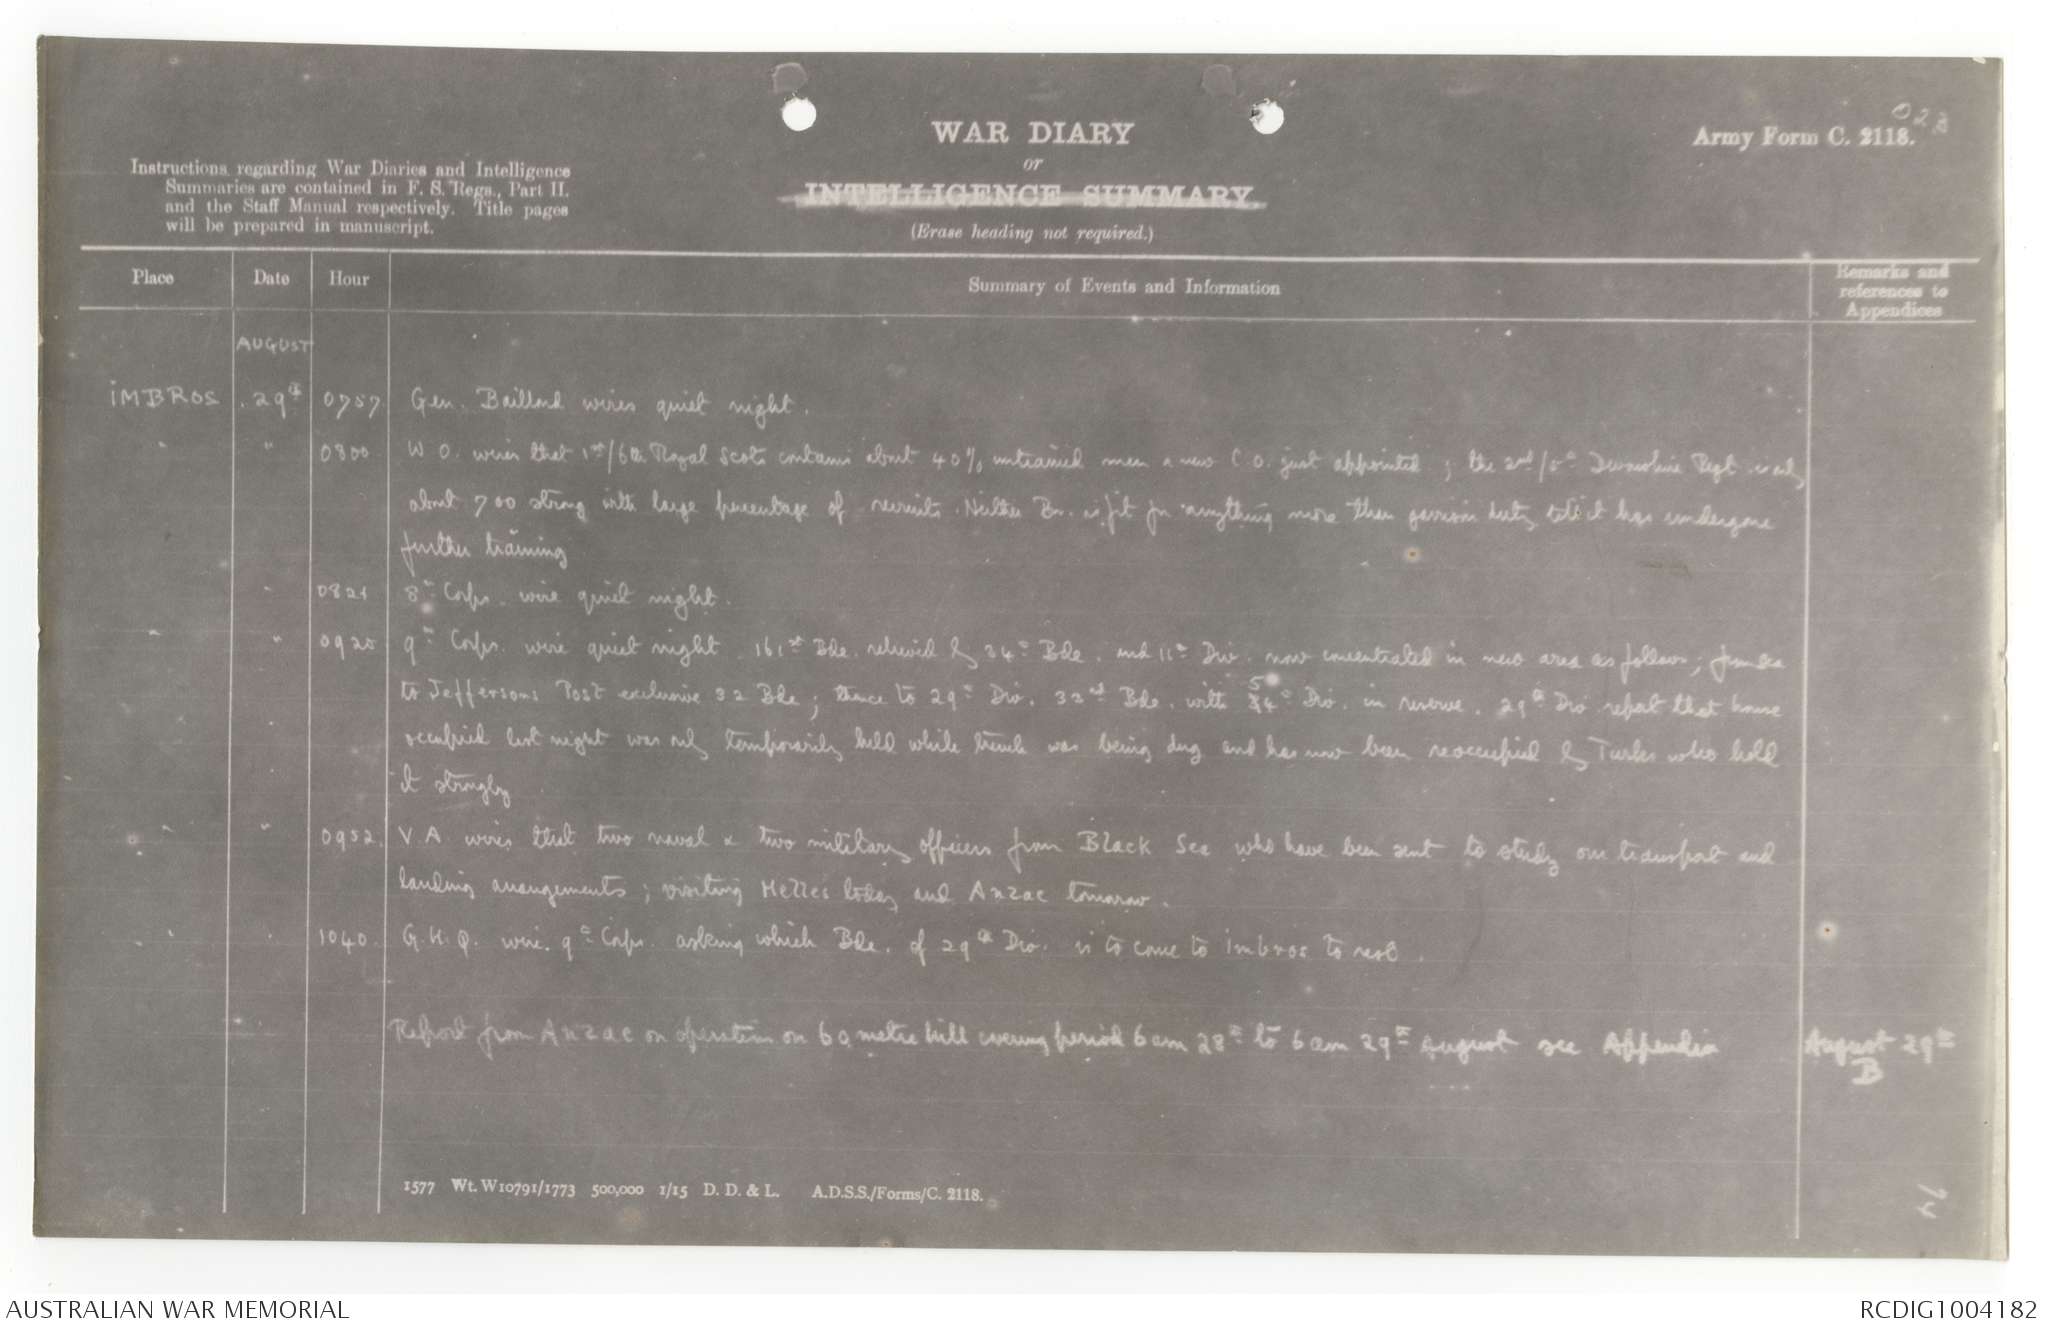 028
WAR DIARY
or
INTELLIGENCE SUMMARY.
(Erase heading not required.)
Army Form C. 2118.
Instructions regarding War Diaries and Intelligence
Summaries are contained in F. S. Regs., Part II.
and the Staff Manual respectively. Title pages
will be prepared in manuscript.
Place Date Hour Summary of Events and Information Remarks and references to Appendices
AUGUST
IMBROS 29th 0757 Gen. wires quiet night.
" " 0800 W.O. wires that 1st/6th Royal Scots contains about 40% untrained men a new C.O. just appointed; the 2nd/5th Devonshire Regt. is only
about 700 strong with large percentage of recruits. Neither Bn. is fit for anything more than garrison duty till it has undergone
further training
" 0821 8th Corps. wire quiet night.
" " 0920 9th Corps. wire quiet night. 161st Bde. relieved by 34th Bde. and 11th Div. now concentrated in new area as follows; from sea
to Jeffersons Post exclusive 32 Bde; thence to 29th Div. 33rd Bde. with 54th Div. in reserve. 29th Div. report that house
occupied last night was only temporarily held while trench was being dug and has now been reoccupied by Turks who hold
it strongly
" " 0952. V.A. wires that two naval & two military officers from Black Sea who have been sent to study our transport and
landing arrangements; visiting Helles today and Anzac tomorrow.
" " 1040. G.H.Q. wire. 9th Corps. asking which Bde. of 29th Div. is to come to Imbros to rest.
Report from Anzac on operation on 60 metre hill covering period 6 am 28th to 6 am 29th August see Appendix August 29th
B
1577 Wt. W10791/1773 500,000 1/15 D. D. & L. A.D.S.S./Forms/C. 2118.
74
AUSTRALIAN WAR MEMORIAL
RCDIG1004182